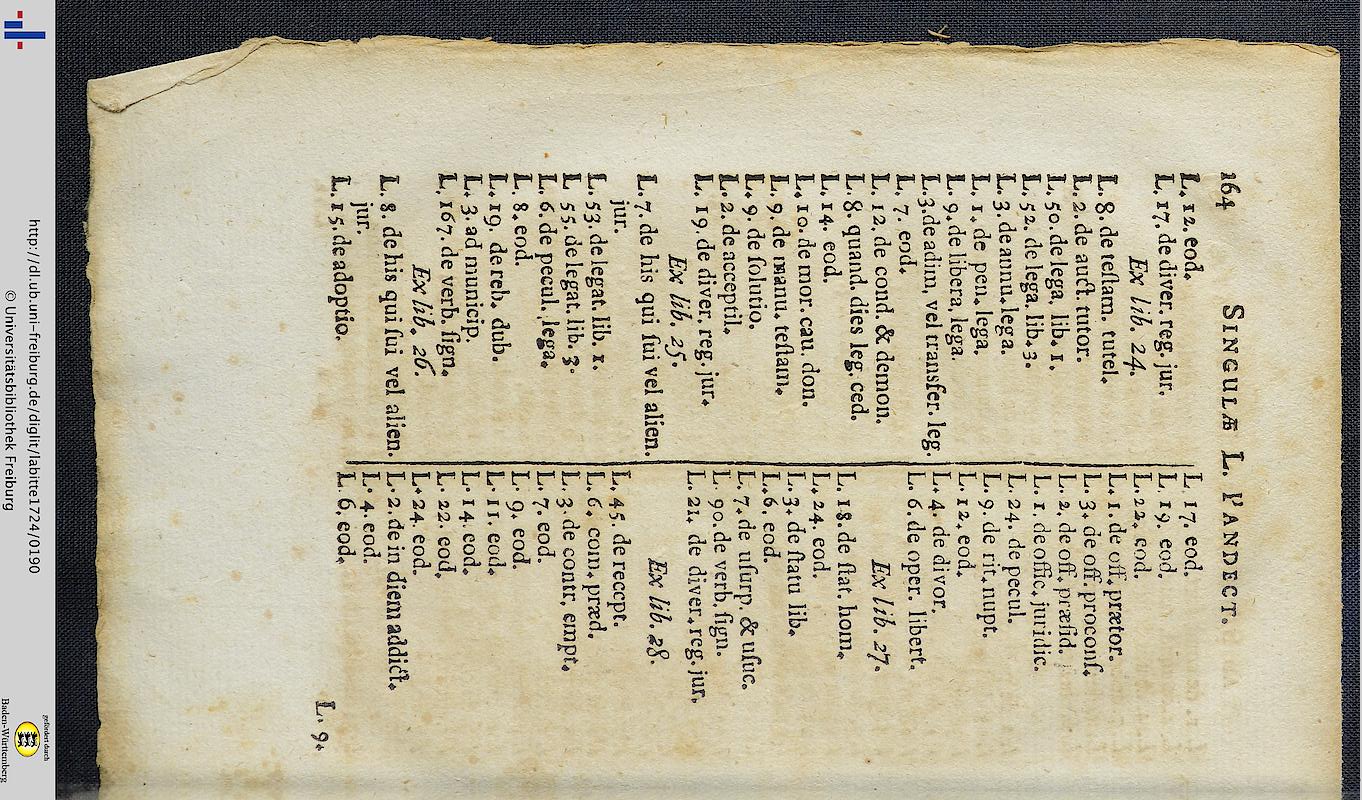 164 SINGULÆ L. PANDECT.
L. 12. eod.
L. 17. de diver. reg. jur.
Ex lib. 24.
L. 8. de teſtam. tutel.
L. 2. de auct. tutor.
L. 50. de lega. lib. 1.
L. 52. de lega. lib. 3.
L. 3. de annu. lega.
L. 1. de pen. lega.
L. 9. de libera. lega.
L. 3. de adim. vel transfer. leg.
L. 7. eod.
L. 12. de cond. & demon.
L. 8. quand. dies leg. ced.
L. 14. eod.
L. 10. de mor. cau. don.
L. 9. de manu. teſtam.
L. 9. de ſolutio.
L. 2. de acceptil.
L. 19. de diver. reg. jur.
Ex lib. 25.
L. 7. de his qui ſui vel alien.
jur.
L. 53. de legat. lib. 1.
L. 55. de legat. lib. 3.
L. 6. de pecul. lega.
L. 8. eod.
L. 19. de reb. dub.
L. 3. ad municip.
L. 167. de verb. ſign.
Ex lib. 26.
L. 8. de his qui ſui vel alien.
jur.
L. 15. de adoptio.
L. 17. eod.
L. 19. eod.
L. 22. eod.
L. 1. de off. prætor.
L. 3. de off. proconſ.
L. 2. de off. præſid.
L. 1. de offic. juridic.
L. 24. de pecul.
L. 9. de rit. nupt.
L. 12. eod.
L. 4. de divor.
L. 6. de oper. libert.
Ex lib. 27.
L. 18. de ſtat. hom.
L. 24. eod.
L. 3. de ſtatu lib.
L. 6. eod.
L. 7. de uſurp. & uſuc.
L. 90. de verb. ſign.
L. 21. de diver. reg. jur.
Ex lib. 28.
L. 45. de recept.
L. 6. com. præd.
L. 3. de contr. empt.
L. 7. eod.
L. 9. eod.
L. 11. eod.
L. 14. eod.
L. 22. eod.
L. 24. eod.
L. 2. de in diem addict.
L. 4. eod.
L. 6. eod.
L. 9.
http://dl.ub.uni-freiburg.de/diglit/labitte1724/0190
© Universitätsbibliothek Freiburg
gefördert durch
Baden-Württemberg